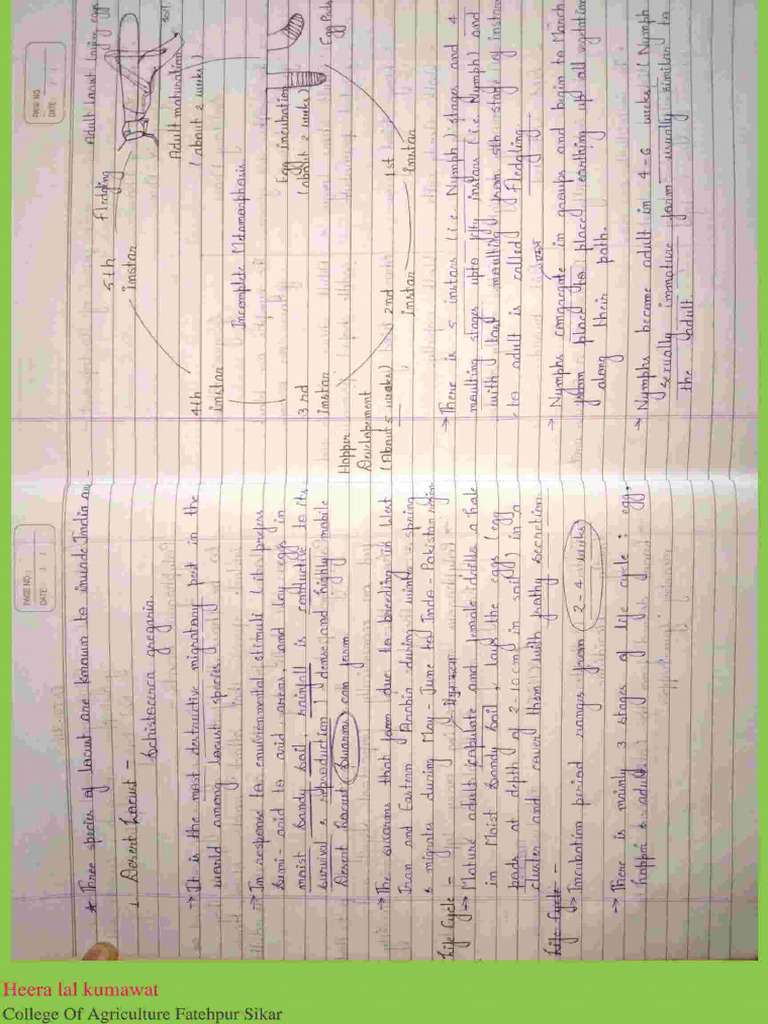 PAGE NO.
DATE
* Three species of locust are known to invade India are -
1. Desert Locust -
Schistocerca gregaria.
→ It is the most destructive migratory pest in the
world among locust species.
→ In response to environmental stimuli (it prefers
Semi-arid to arid areas, and lay eggs in
moist sandy soil, rainfall is conductive to its
survival & reproduction) dense and highly mobile
Desert locust swarms can form.
→ The swarms that form due to breeding in West
Iran and Eastern Arabia during winter - spring
& migrates during May - June to Indo - Pakistan region
Life Cycle -
→ Mature adult copulate and female drills a hole
in Moist sandy soil, lays the eggs (egg
pods at depth of 2-10 cm in soil) in a
cluster and cover them with frothy secretion.
Life Cycle -
→ Incubation period ranges from 2-4 weeks
→ There is mainly 3 stages of life cycle : egg,
hopper & adult.
PAGE NO.
DATE
Adult locust laying egg
soil
5th instar
Fledging
Adult maturation
(about 2 weeks)
4th instar
Incomplete Metamorphosis
Egg incubation
(about 2 weeks)
Egg Pods
3rd instar
Hopper Development
(About 5 weeks)
2nd instar
1st instar
→ There is 5 instars (i.e. Nymph) stages and 4
moulting stages upto fifth instars (i.e. Nymph) and
with last moulting from 5th stage of instar
to adult is called Fledgling
→ Nymphs congregate in groups and begin to March
from place to place, eating up all vegetation
along their path.
→ Nymphs become adult in 4-6 weeks (Nymph
sexually immature form usually similar to
the adult
Heera lal kumawat
College Of Agriculture Fatehpur Sikar